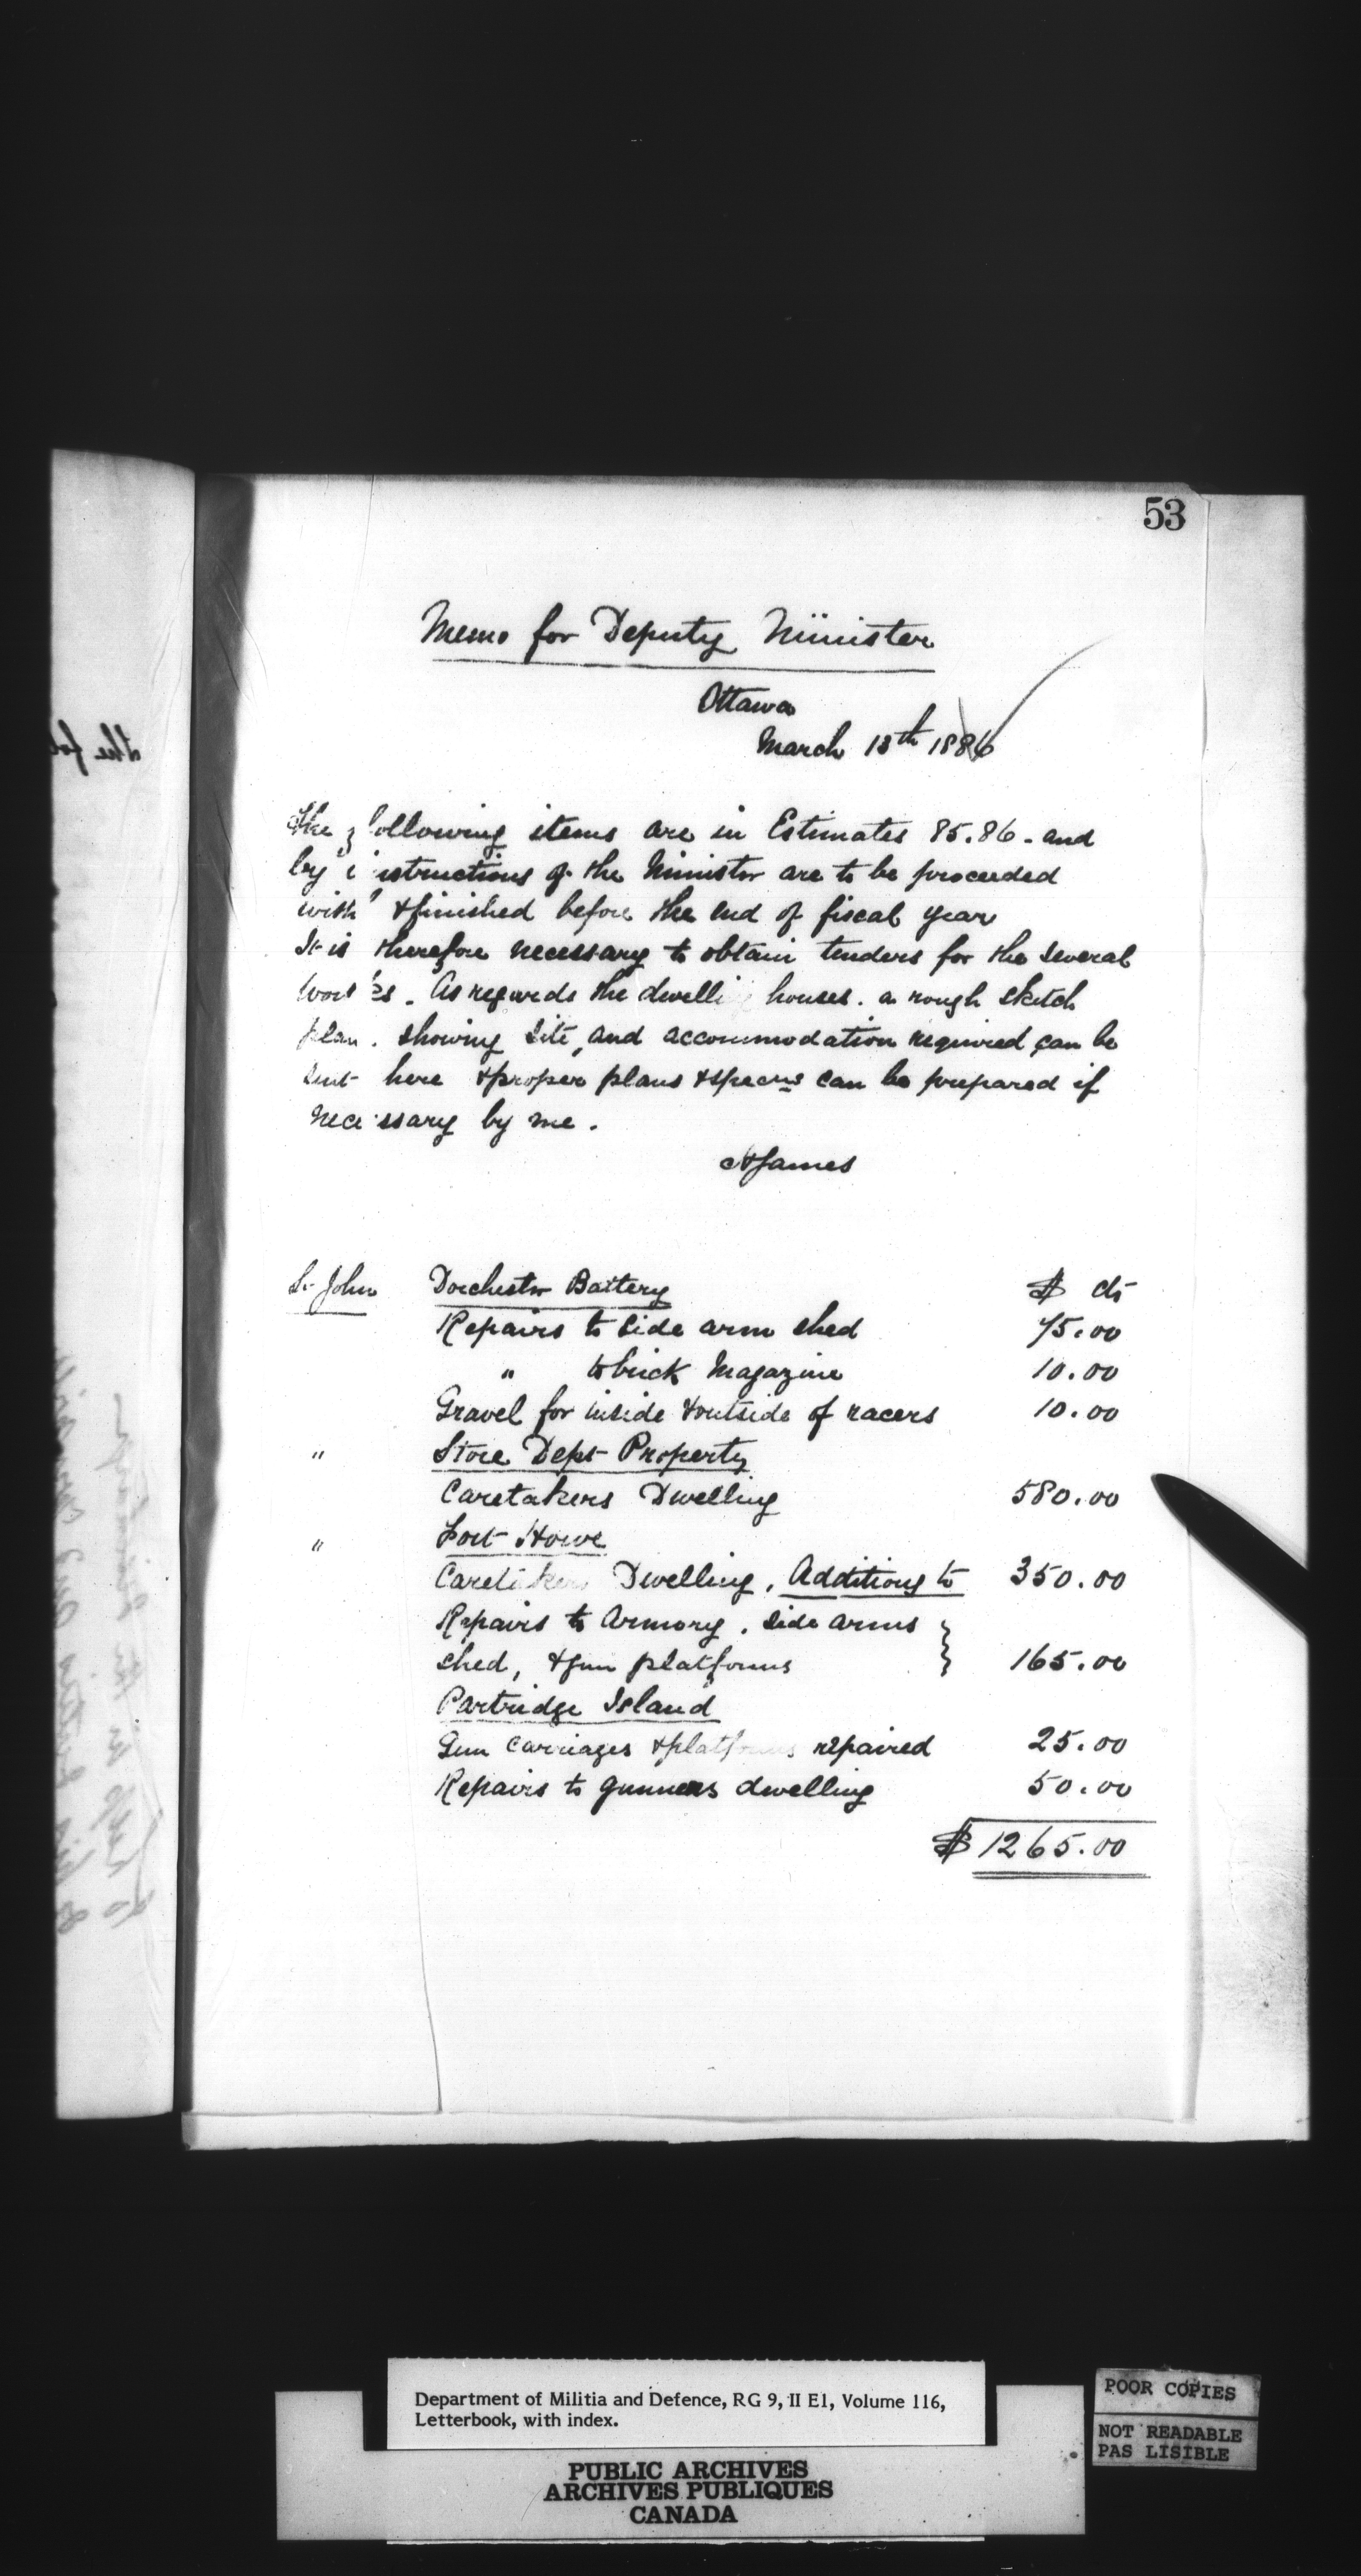 53
Memo for Deputy Minister
Ottawa
March 13th 1886
The following items are in Estimates 85.86 - and
by instructions of the Minister are to be proceeded
with & finished before the end of fiscal year
It is therefore necessary to obtain tenders for the several
works. As regards the dwelling houses. a rough sketch
plan. showing site, and accommodation required can be
sent here & proper plans & specns can be prepared if
necessary by me.
James
St John Dorchester Battery $ cts
Repairs to side arm shed 75.00
" to brick Magazine 10.00
Gravel for inside & outside of racers 10.00
" Store Dept Property
Caretakers Dwelling 580.00
" Fort Howe
Caretakers Dwelling, Additions to 350.00
Repairs to Armory, side arms
shed, & gun platforms } 165.00
Partridge Island
Gun Carriages & platforms repaired 25.00
Repairs to gunners dwelling 50.00
$ 1265.00
Department of Militia and Defence, RG 9, II E1, Volume 116,
Letterbook, with index.
PUBLIC ARCHIVES
ARCHIVES PUBLIQUES
CANADA
POOR COPIES
NOT READABLE
PAS LISIBLE